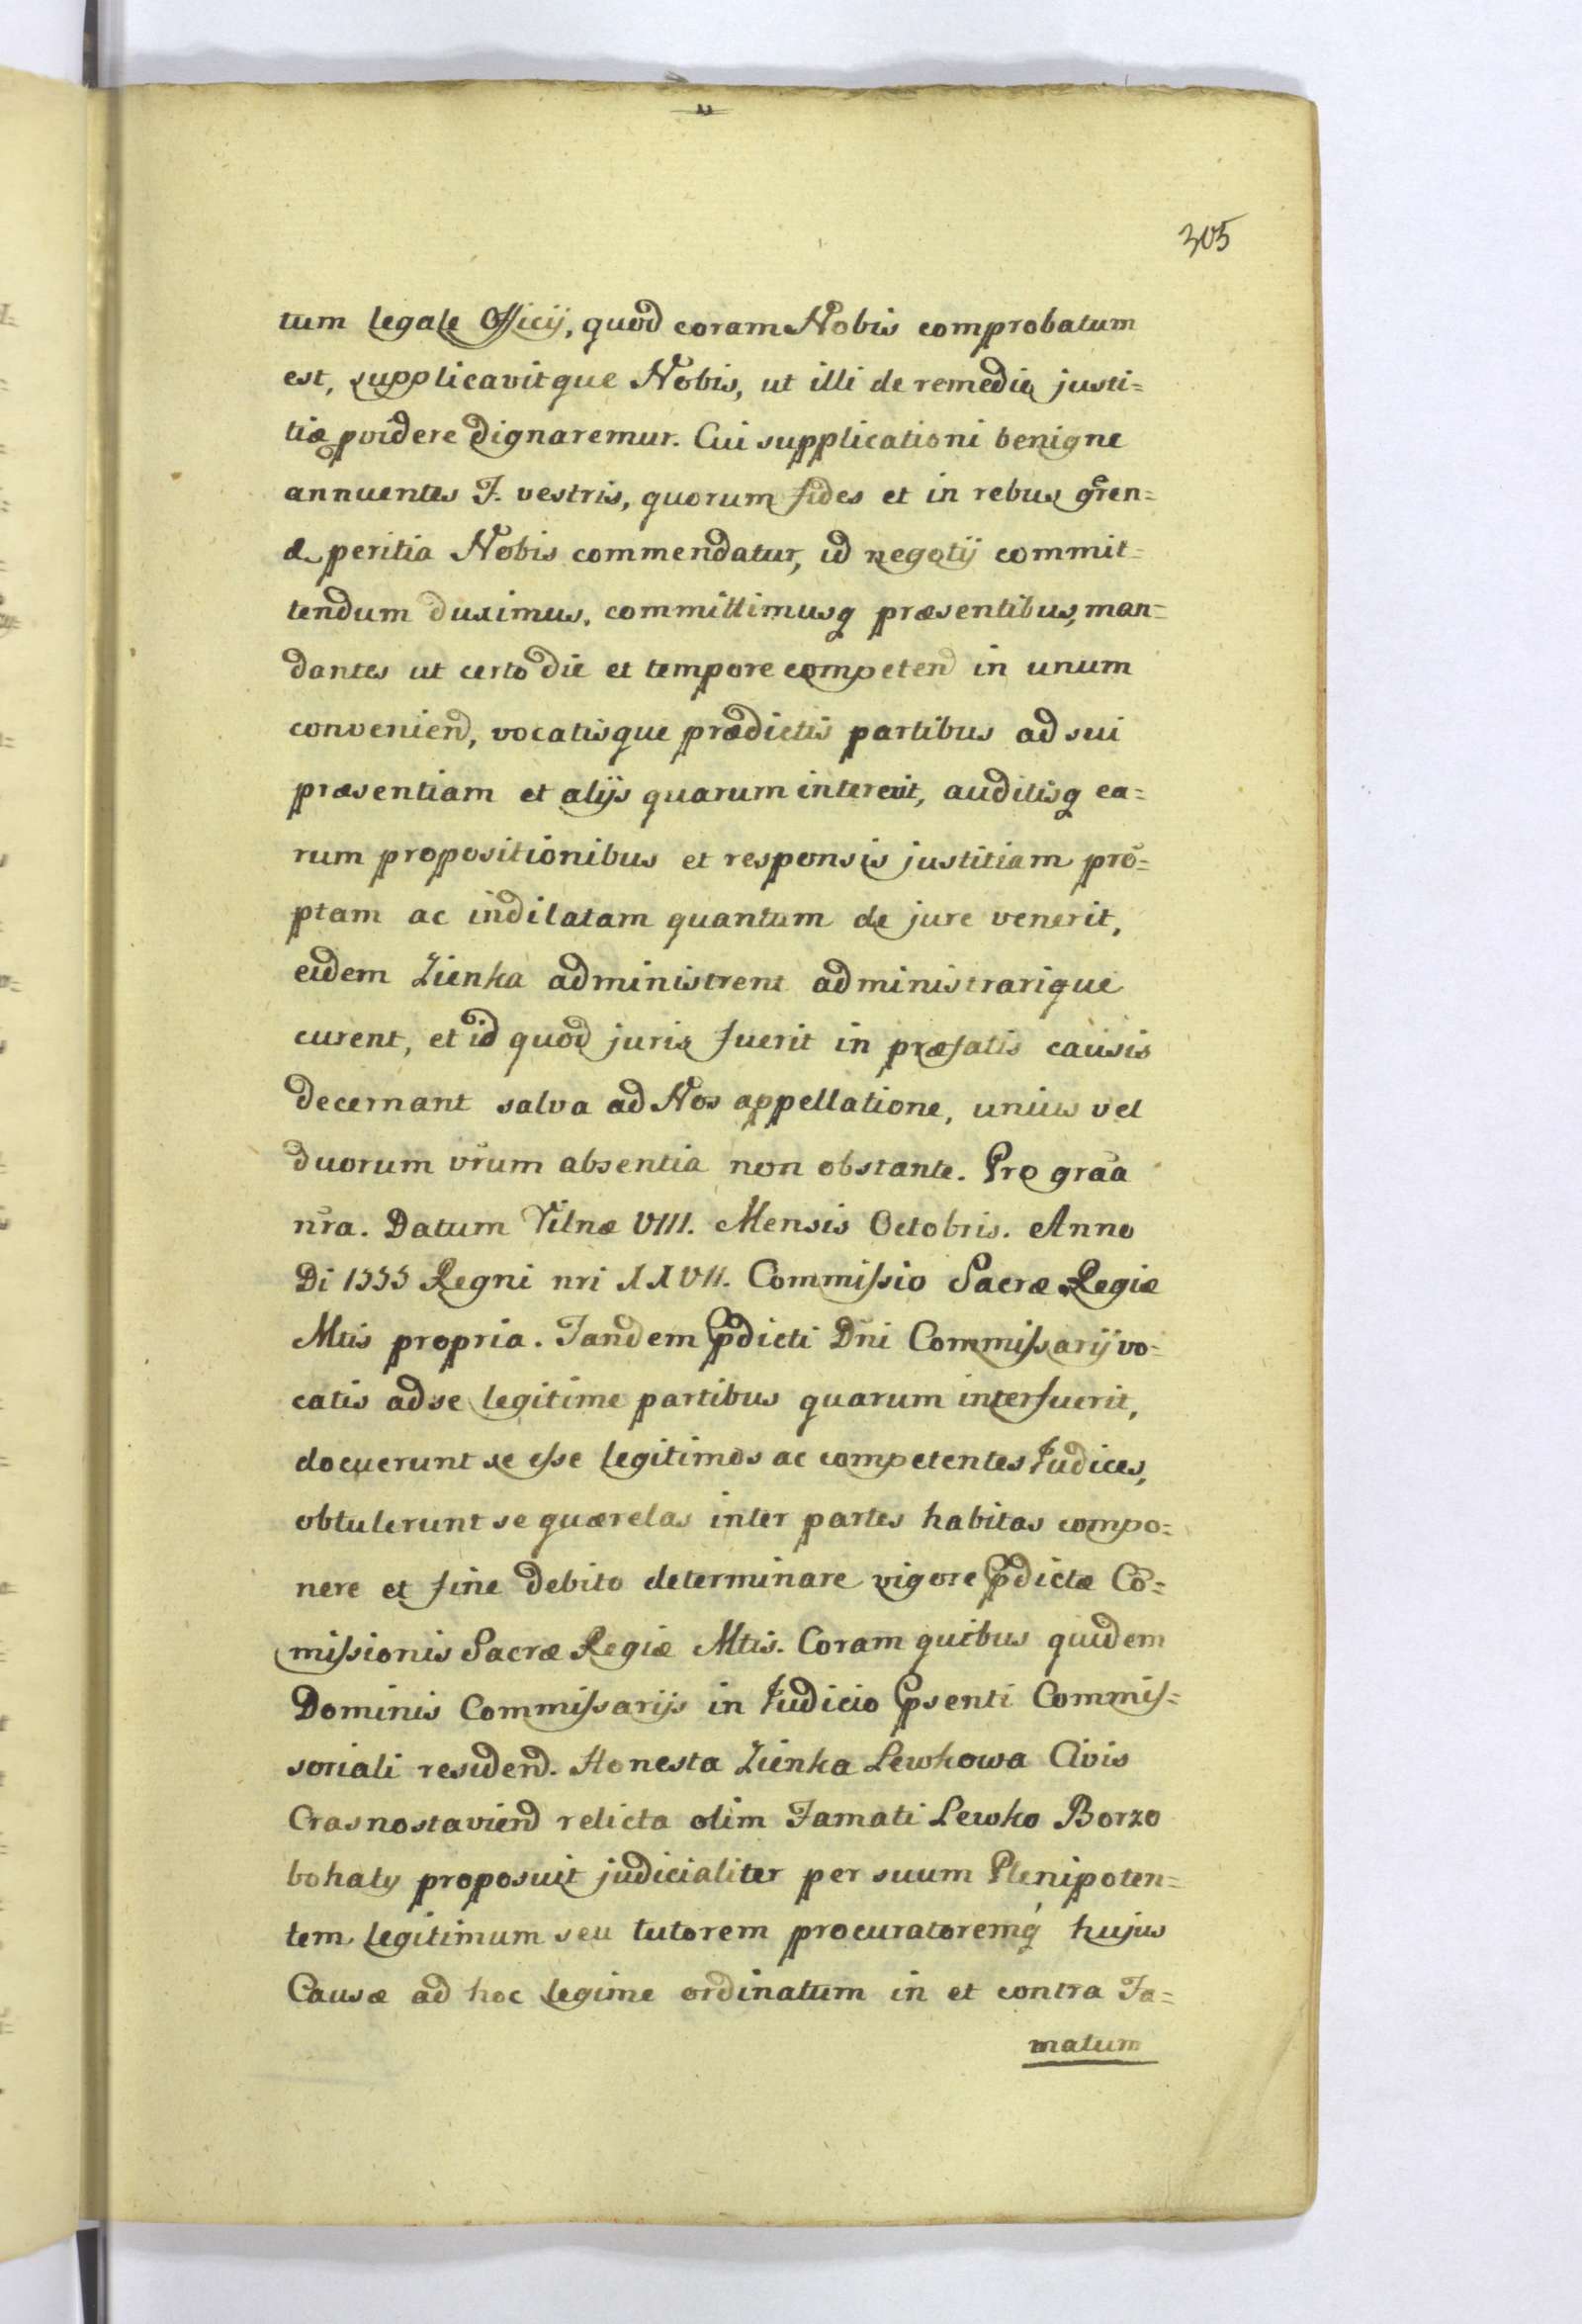 305
tum legale Officij, quod coram Nobis comprobatum
est, supplicavitque Nobis, ut illi de remedio justi=
tiæ pvidere dignaremur. Cui supplicationi benigne
annuentes F. vestris, quorum fides et in rebus geren=
d. peritia Nobis commendatur, id negotij commit=
tendum duximus, committimusq præsentibus, man=
dantes ut certo die et tempore competend in unum
conveniend, vocatisque prædictis partibus ad sui
præsentiam et alijs quarum intererit, auditisq ea=
rum propositionibus et responsis justitiam prõ=
ptam ac indilatam quantum de jure venerit,
eidem Zienka administrent administrarique
curent, et id quod juris fuerit in præfatis causis
decernant salva ad Nos appellatione, unius vel
duorum vr̃um absentia non obstante. Pro gra͞a
nr̃a. Datum Vilnæ VIII. Mensis Octobris. Anno
Di 1555 Regni nri XXVII. Commissio Sacræ Regiæ
Mtis propria. Tandem pdicti Dñi Commissarij vo=
catis ad se legitime partibus quarum interfuerit,
docuerunt se esse legitimos ac competentes Judices,
obtulerunt se quærelas inter partes habitas compo=
nere et fine debito determinare vigore pdictæ Cõ=
missionis Sacræ Regiæ Mtis. Coram quibus quidem
Dominis Commissarijs in Judicio psenti Commis=
soriali residend. Honesta Zienka Lewkowa Civis
Crasnostaviend relicta olim Famati Lewko Borzo
bohaty proposuit judicialiter per suum Plenipoten=
tem legitimum seu tutorem procuratoremq́ hujus
Causæ ad hoc legime ordinatum in et contra Fa=
matum